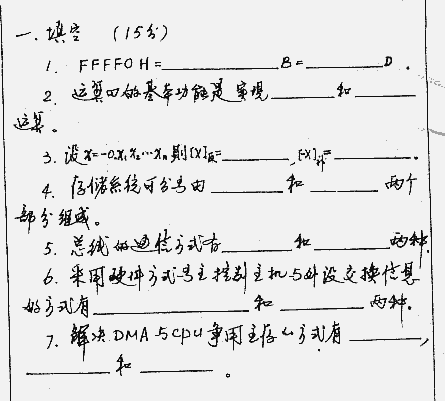 一. 填空 (15分)
1. FFFF0H=________B=________D.
2. 运算四的基本功能是实现________和________
运算。
3. 设x=-0.x₁x₂…xₙ则[X]反=________,[-X]补=________.
4. 存储系统可分为由________和________两个
部分组成。
5. 总线的通信方式有________和________两种.
6. 采用硬件方式为主控制主机与外设交换信息
的方式有________和________两种.
7. 解决DMA与CPU争用主存的方式有________,
________和________。